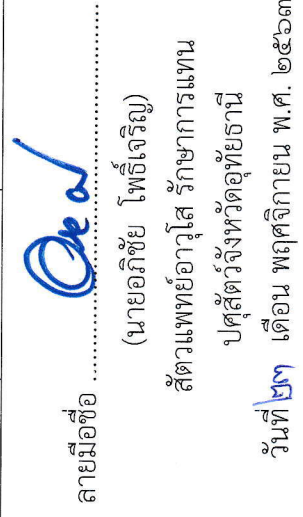 ลายมือชื่อ ........................................
(นายอภิชัย โพธิ์เจริญ)
สัตวแพทย์อาวุโส รักษาการแทน
ปศุสัตว์จังหวัดอุทัยธานี
วันที่ ๒๓ เดือน พฤศจิกายน พ.ศ. ๒๕๖๓